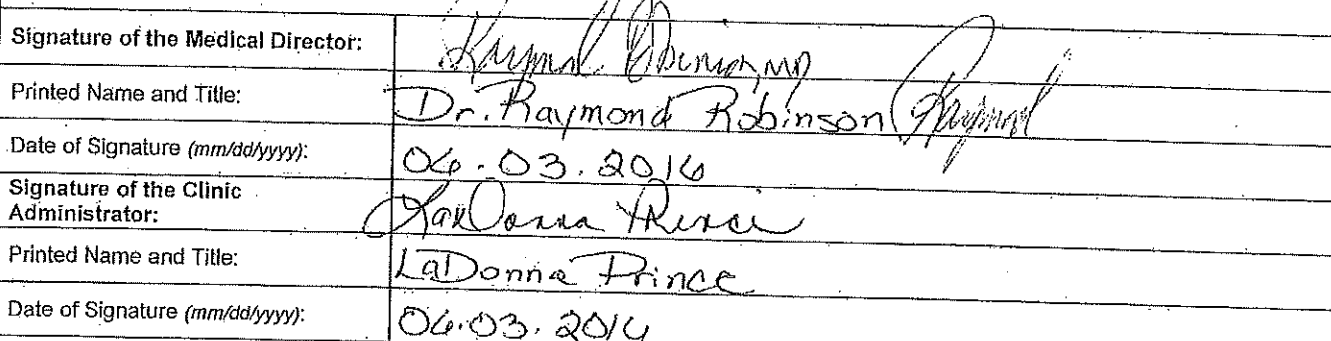 Signature of the Medical Director: Raymond Robinson, MD
Printed Name and Title: Dr. Raymond Robinson Raymond
Date of Signature (mm/dd/yyyy): 06.03.2016
Signature of the Clinic
Administrator: LaDonna Prince
Printed Name and Title: LaDonna Prince
Date of Signature (mm/dd/yyyy): 06.03.2016